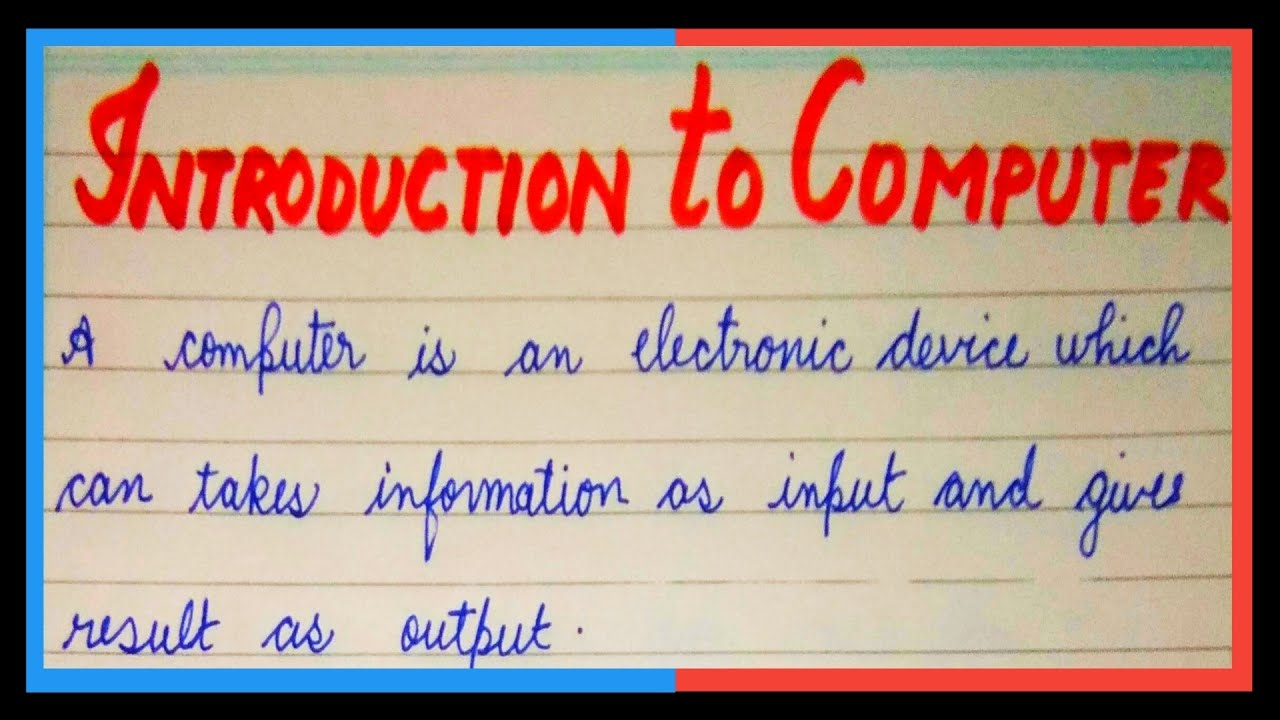 INTRODUCTION to COMPUTER
A computer is an electronic device which
can takes information as input and gives
result as output.